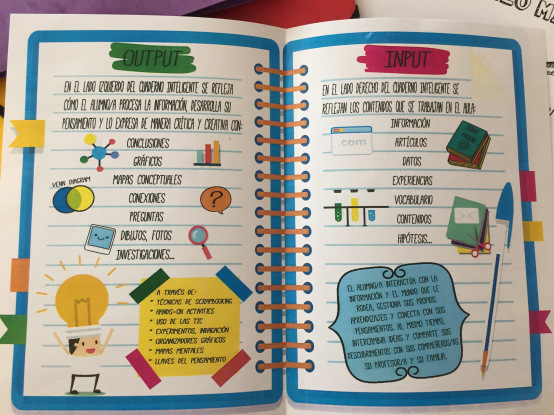 OUTPUT
EN EL LADO IZQUIERDO DEL CUADERNO INTELIGENTE SE REFLEJA
CÓMO EL ALUMNO/A PROCESA LA INFORMACIÓN, DESARROLLA SU
PENSAMIENTO Y LO EXPRESA DE MANERA CRÍTICA Y CREATIVA CON:
CONCLUSIONES
GRÁFICOS
MAPAS CONCEPTUALES
VENN DIAGRAM
CONEXIONES
PREGUNTAS
DIBUJOS, FOTOS
INVESTIGACIONES...
A TRAVÉS DE:
* TÉCNICAS DE SCRAPBOOKING
* HANDS-ON ACTIVITIES
* USO DE LAS TIC
* EXPERIMENTOS, INDAGACIÓN
* ORGANIZADORES GRÁFICOS
* MAPAS MENTALES
* LLAVES DEL PENSAMIENTO
INPUT
EN EL LADO DERECHO DEL CUADERNO INTELIGENTE SE
REFLEJAN LOS CONTENIDOS QUE SE TRABAJAN EN EL AULA:
INFORMACIÓN
.com
ARTÍCULOS
DATOS
EXPERIENCIAS
VOCABULARIO
CONTENIDOS
HIPÓTESIS...
EL ALUMNO/A INTERACTÚA CON LA
INFORMACIÓN Y EL MUNDO QUE LE
RODEA, GESTIONA SUS PROPIOS
APRENDIZAJES Y CONECTA CON SUS
PENSAMIENTOS. AL MISMO TIEMPO,
INTERCAMBIA IDEAS Y COMPARTE SUS
DESCUBRIMIENTOS CON SUS COMPAÑEROS/AS
SU PROFESOR/A Y SU FAMILIA.